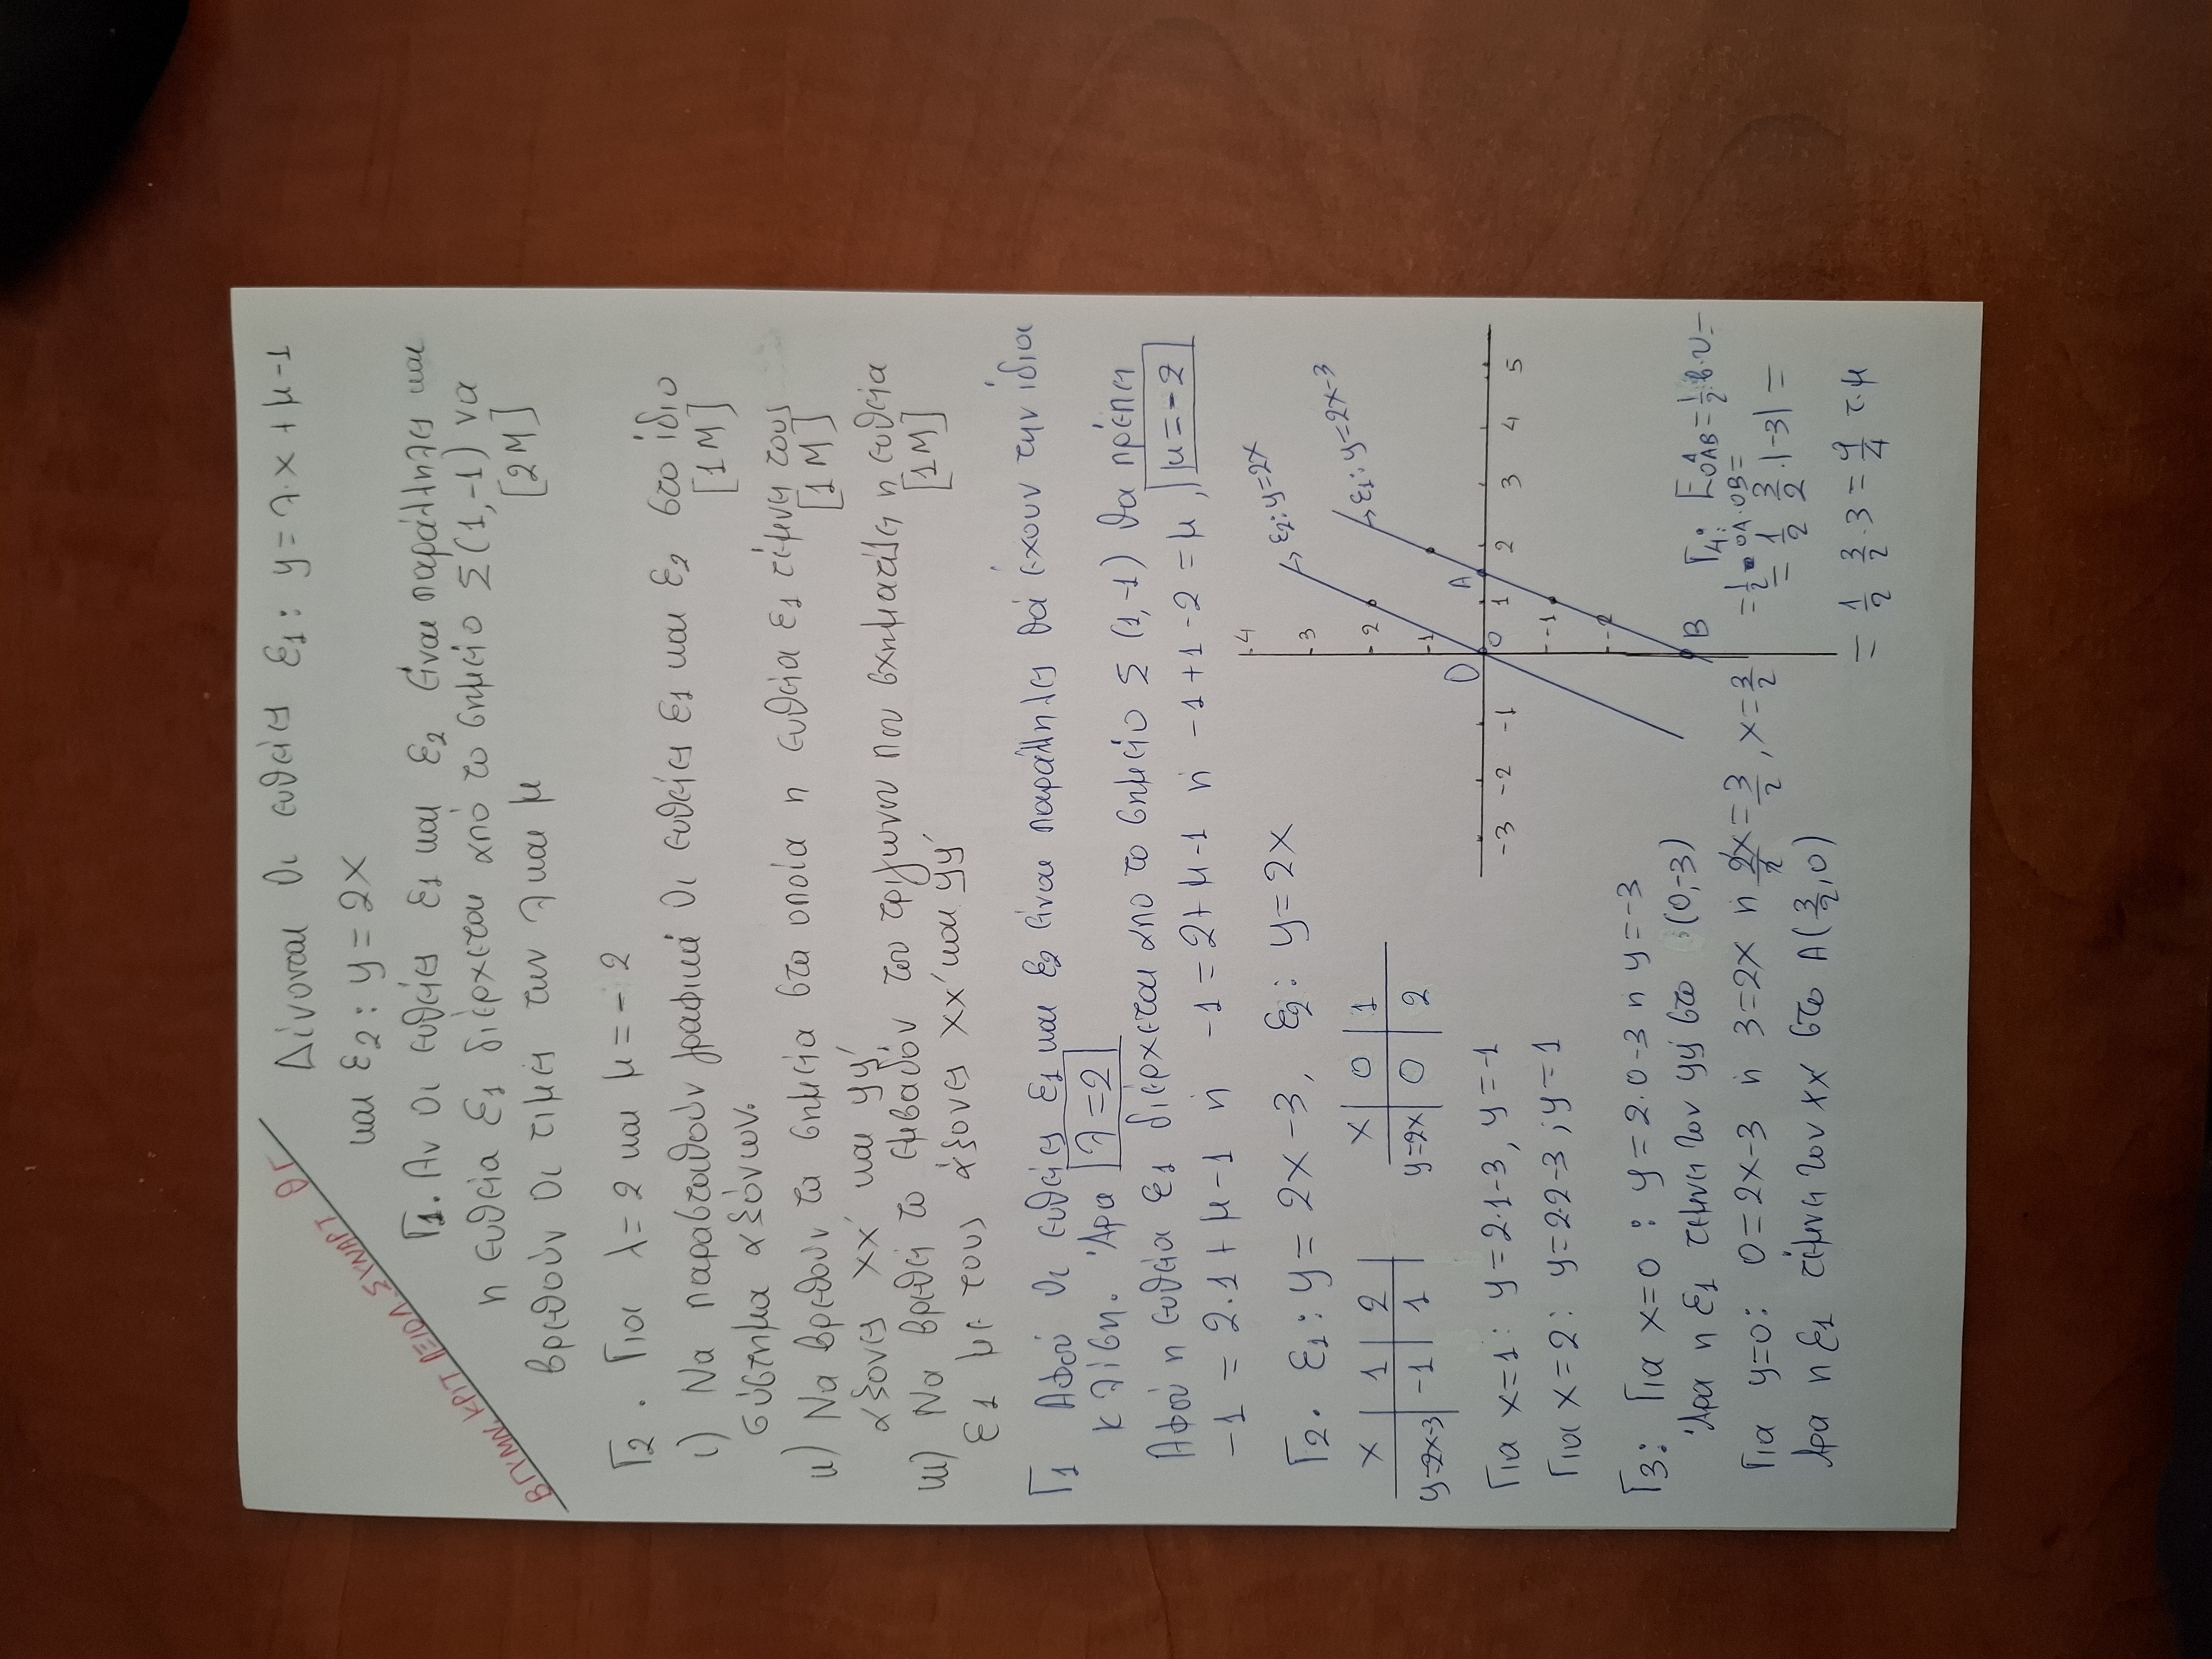 ΒΓΥΜΝ. ΚΡΙΤ ΑΞΙΟΛ ΣΥΝΑΡΤ ΘΓ
Δίνονται οι ευθείες ε1: y = λ·x + μ-1
και ε2: y = 2x
Γ1. Αν οι ευθείες ε1 και ε2 είναι παράλληλες και
η ευθεία ε1 διέρχεται από το σημείο Σ(1,-1) να
βρεθούν οι τιμές των λ και μ [2Μ]
Γ2. Για λ=2 και μ=-2
i) Να παρασταθούν γραφικά οι ευθείες ε1 και ε2 στο ίδιο
σύστημα αξόνων. [1Μ]
ii) Να βρεθούν τα σημεία στα οποία η ευθεία ε1 τέμνει τους
άξονες xx' και yy' [1Μ]
iii) Να βρεθεί το εμβαδόν του τριγώνου που σχηματίζει η ευθεία
ε1 με τους άξονες xx' και yy' [1Μ]
Γ1 Αφού οι ευθείες ε1 και ε2 είναι παράλληλες θά έχουν την ίδια
κλίση. Άρα λ=2
Αφού η ευθεία ε1 διέρχεται απο το σημείο Σ (1,-1) θα πρέπει
-1 = 2·1 + μ-1 ή -1 = 2+μ-1 ή -1+1-2 = μ, μ=-2
Γ2. ε1: y = 2x-3, ε2: y = 2x
x | 1 | 2
y=2x-3 | -1 | 1
x | 0 | 1
y=2x | 0 | 2
Για x=1: y=2·1-3, y=-1
Για x=2: y=2·2-3, y=1
4
3
2
1
-3 -2 -1 0 1 2 3 4 5
-1
-2
O A B
ε2: y=2x
ε1: y=2x-3
Γ3: Για x=0: y=2·0-3 ή y=-3
Άρα η ε1 τέμνει τον yy' στο (0,-3)
Για y=0: 0=2x-3 ή 3=2x ή 2x/2=3/2, x=3/2
Άρα η ε1 τέμνει τον xx' στο Α(3/2,0)
Γ4: ΕΟΑΒ=1/2·β·υ=
=1/2·ΟΑ·ΟΒ=
=1/2·3/2·|-3|=
=1/2·3/2·3=9/4 τ.μ